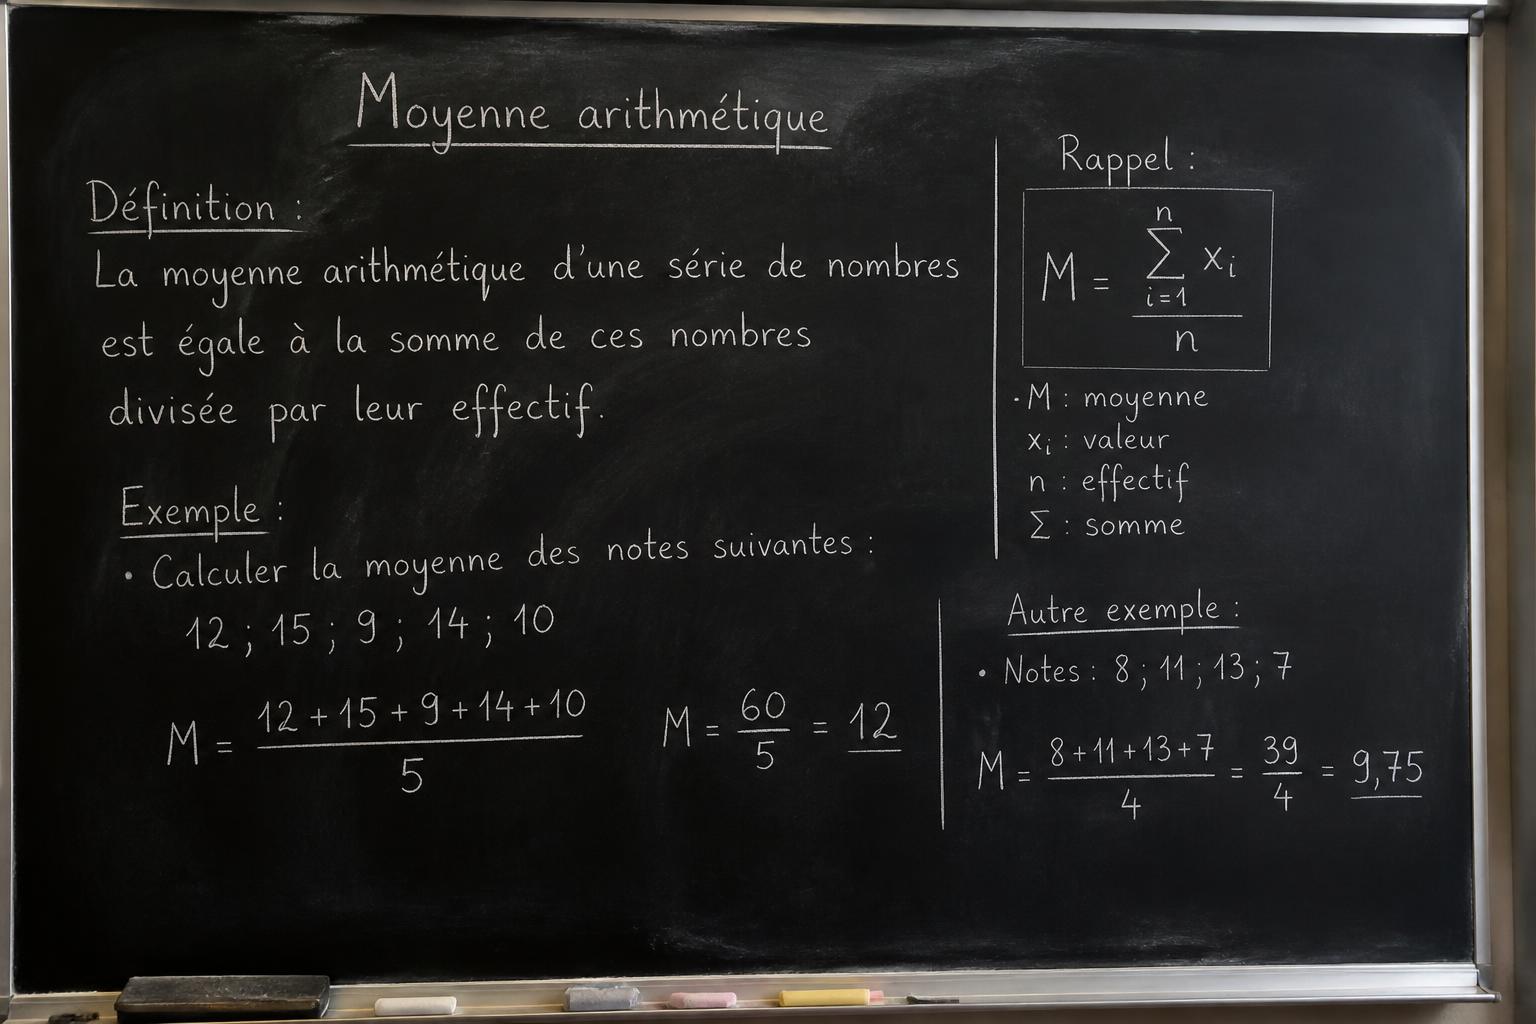 Moyenne arithmétique
Définition :
La moyenne arithmétique d'une série de nombres
est égale à la somme de ces nombres
divisée par leur effectif.
Exemple :
• Calculer la moyenne des notes suivantes :
12 ; 15 ; 9 ; 14 ; 10
M = (12 + 15 + 9 + 14 + 10) / 5 M = 60 / 5 = 12
Rappel :
M = ∑_{i=1}^{n} x_i / n
· M : moyenne
x_i : valeur
n : effectif
∑ : somme
Autre exemple :
• Notes : 8 ; 11 ; 13 ; 7
M = (8 + 11 + 13 + 7) / 4 = 39 / 4 = 9,75